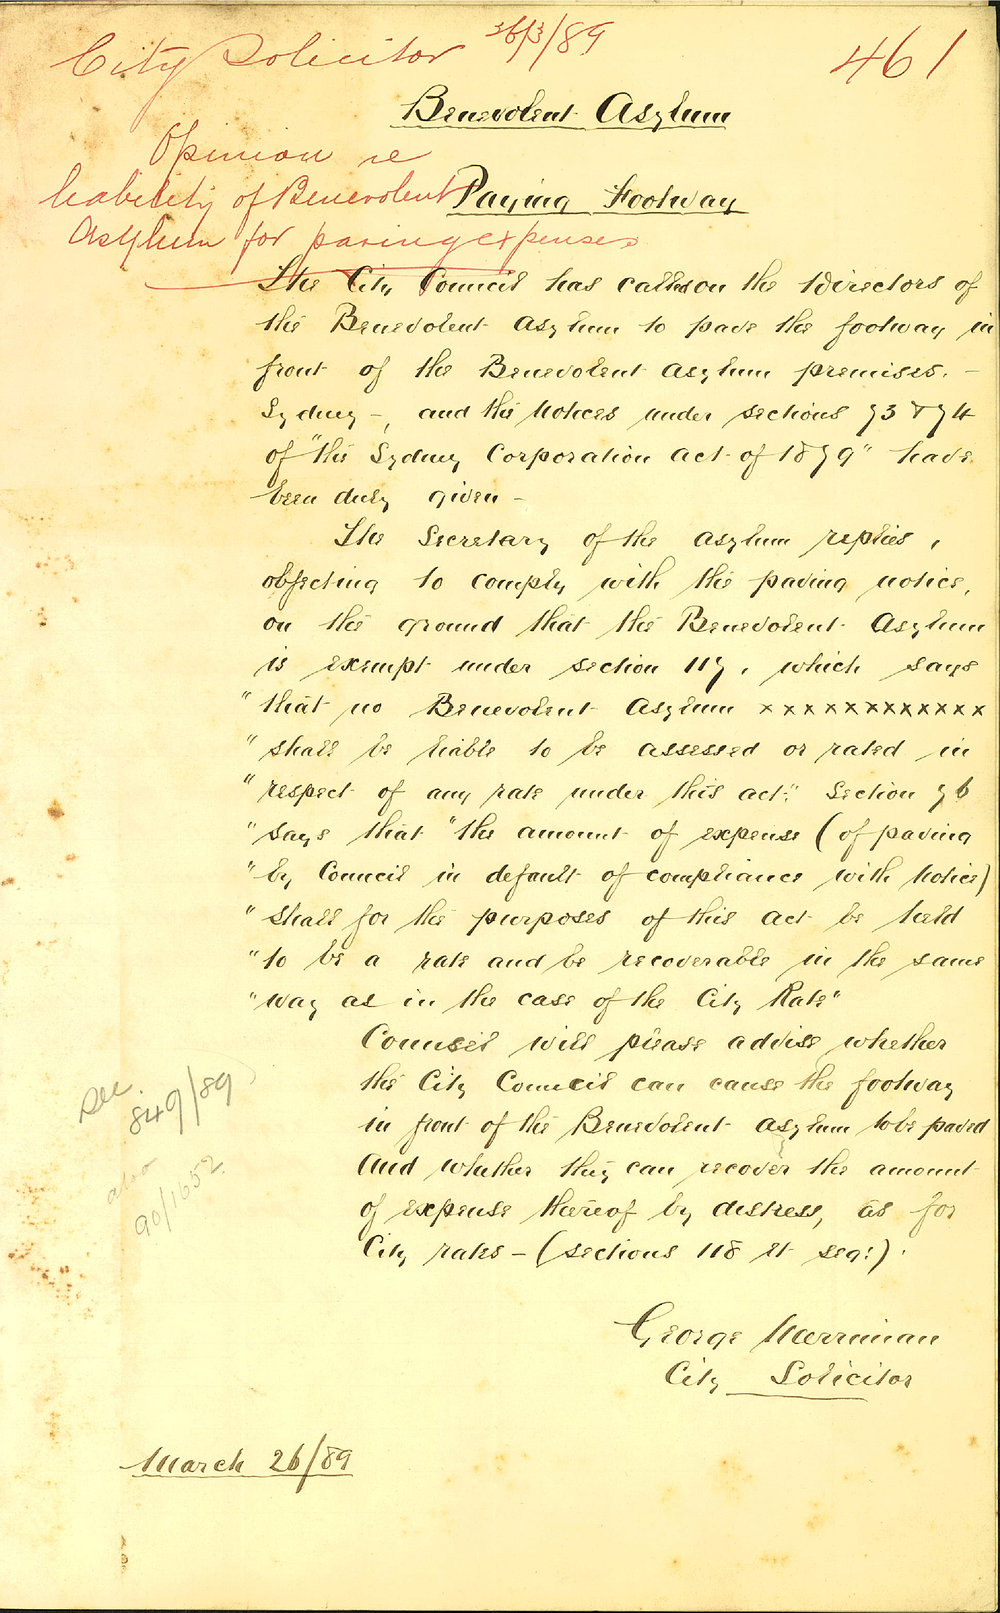 City Solicitor 26/3/89
461
Benevolent Asylum
Opinion re
liability of Benevolent
Asylum for paving expenses
Paving Footway
The City Council has called on the Directors of
the Benevolent Asylum to pave the footway in
front of the Benevolent Asylum premises. –
Sydney –, and the Notices under sections 73 & 74
of "the Sydney Corporation Act of 1879" have
been duly given –
The Secretary of the Asylum replies,
objecting to comply with the paving notice,
on the ground that the Benevolent Asylum
is exempt under section 117, which says
"that no Benevolent Asylum xxxxxxxxxxxx
"shall be liable to be assessed or rated in
"respect of any rate under this act". Section 76
"says that "the amount of expense (of paving
"by Council in default of compliance with Notice)
"shall for the purposes of this Act be held
"to be a rate and be recoverable in the same
"way as in the case of the City Rate"
Counsel will please advise whether
the City Council can cause the footway
in front of the Benevolent Asylum to be paved
And whether they can recover the amount
of expense thereof by distress, as for
City rates – (sections 118 et seq:).
See
849/89
also
90/1652
George Merriman
City Solicitor
March 26/89